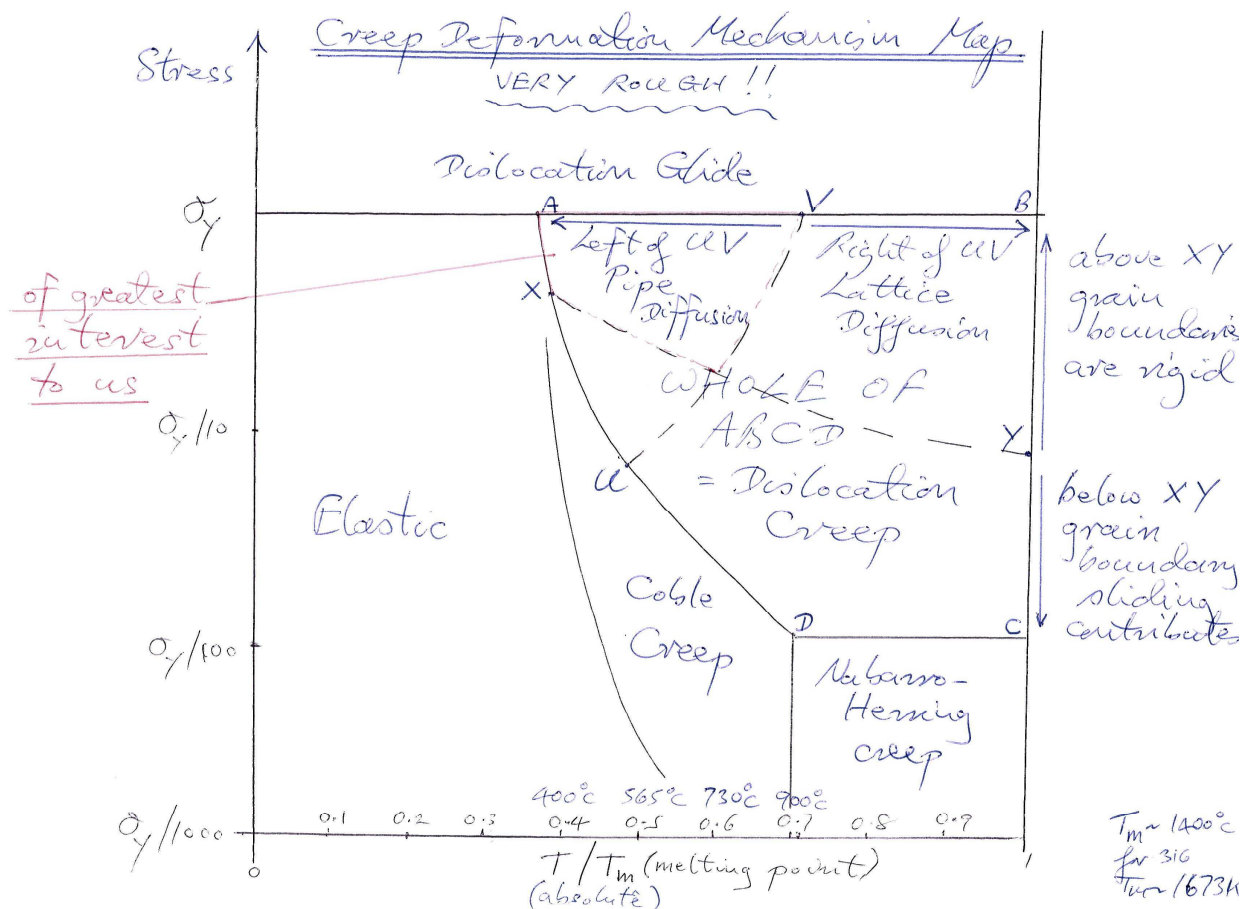 Creep Deformation Mechanism Map
VERY ROUGH !!
Stress
Dislocation Glide
σy
A
V
B
Left of UV
Pipe
Diffusion
Right of UV
Lattice
Diffusion
above XY
grain
boundaries
are rigid
of greatest
interest
to us
X
WHOLE OF
ABCD
= Dislocation
Creep
σy/10
Y
U
Elastic
below XY
grain
boundary
sliding
contributes
Coble
Creep
D
C
σy/100
Nabarro-
Herring
creep
400°C 565°C 730°C 900°C
0.1 0.2 0.3 0.4 0.5 0.6 0.7 0.8 0.9
σy/1000
0
1
T/Tm (melting point)
(absolute)
Tm~1400°C
for 316
Tm~1673K